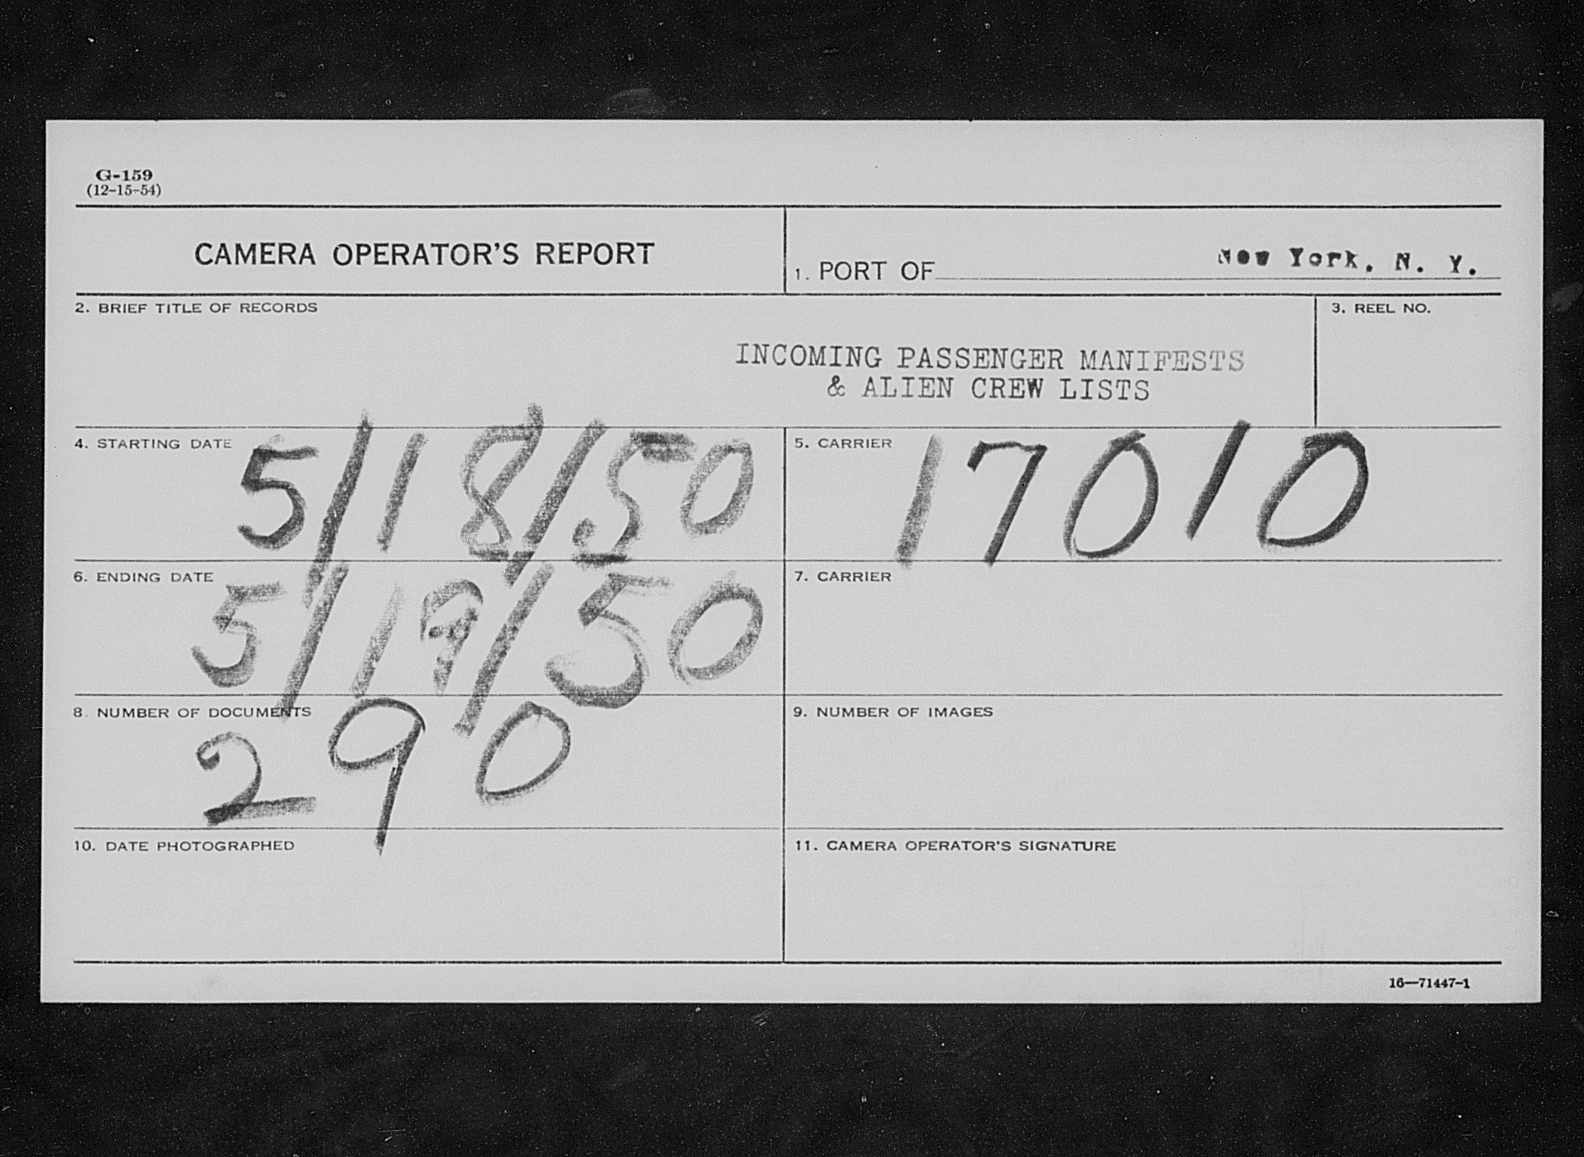 G-159
(12-15-54)
CAMERA OPERATOR'S REPORT
1. PORT OF New York, N. Y.
2. BRIEF TITLE OF RECORDS
INCOMING PASSENGER MANIFESTS
& ALIEN CREW LISTS
3. REEL NO.
4. STARTING DATE 5/18/50
5. CARRIER 17010
6. ENDING DATE
5/19/50
7. CARRIER
8. NUMBER OF DOCUMENTS
290
9. NUMBER OF IMAGES
10. DATE PHOTOGRAPHED
11. CAMERA OPERATOR'S SIGNATURE
16—71447-1